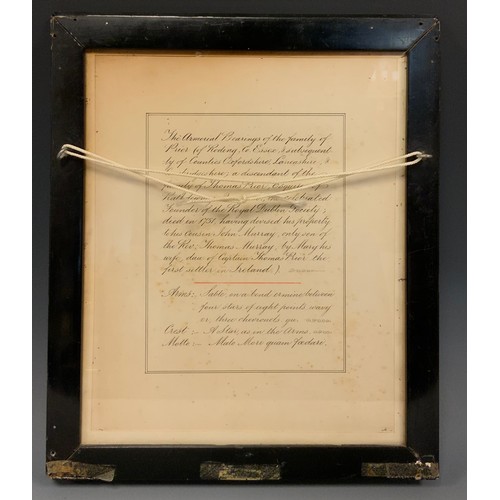 The Armorial Bearings of the family of
Prior (of Roding Co Essex, & subsequent
ly of Counties Oxfordshire, Lancashire, &
a descendant of the
family of Thomas Prior Esquire of
Rathdowney the celebrated
Founder of the Royal Dublin Society;
died in 1751, having devised his property
to his Cousin John Murray, only son of
the Rev. Thomas Murray, by Mary his
wife, dau of Captain Thomas Prior the
first settler in Ireland.)
Arms:- Sable, on a bend ermine between
four stars of eight points wavy
or three chevronels gu.
Crest:- A Star, as in the Arms.
Motto:- Malo Mori quam foedari.